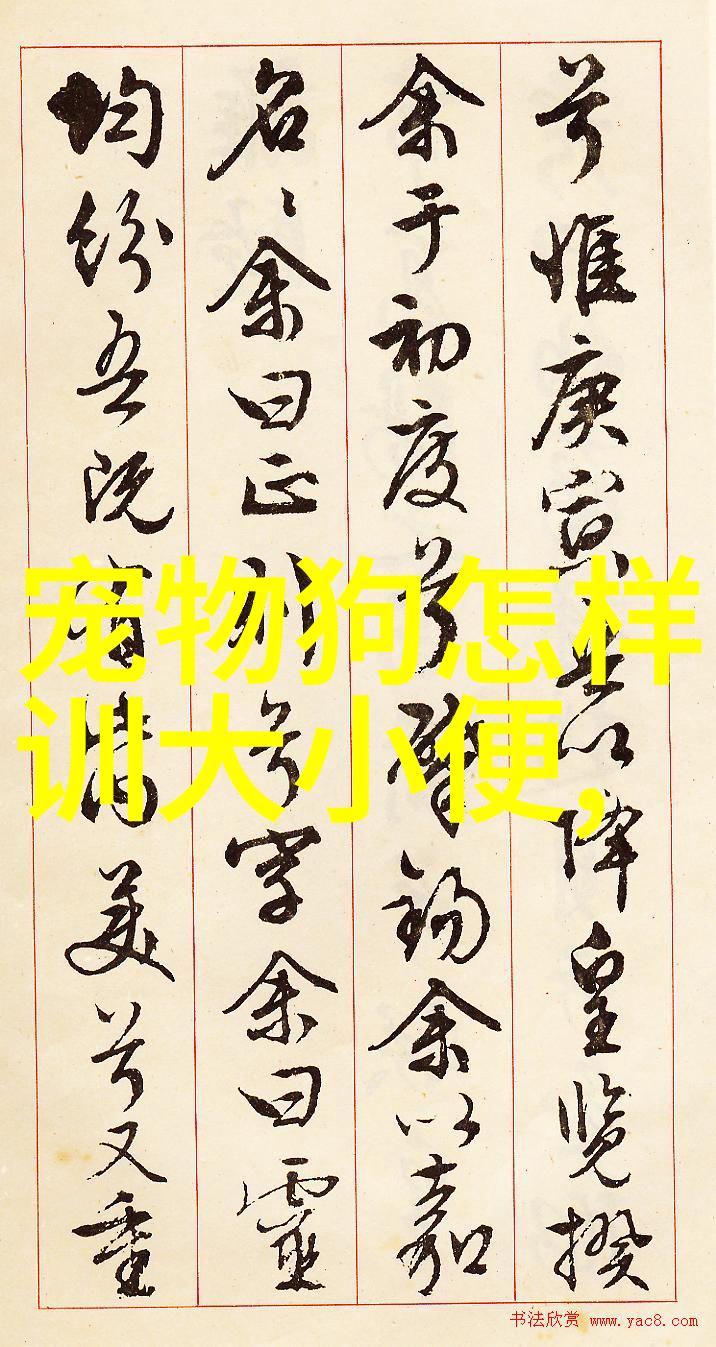 兮惟庚寅吾以降皇览揆
余于初度兮肇錫余以嘉
名々余曰正则兮字余曰靈
均紛吾既有此内美兮又重
宠物狗怎样
训大小便,
书法欣赏 www.yac8.com